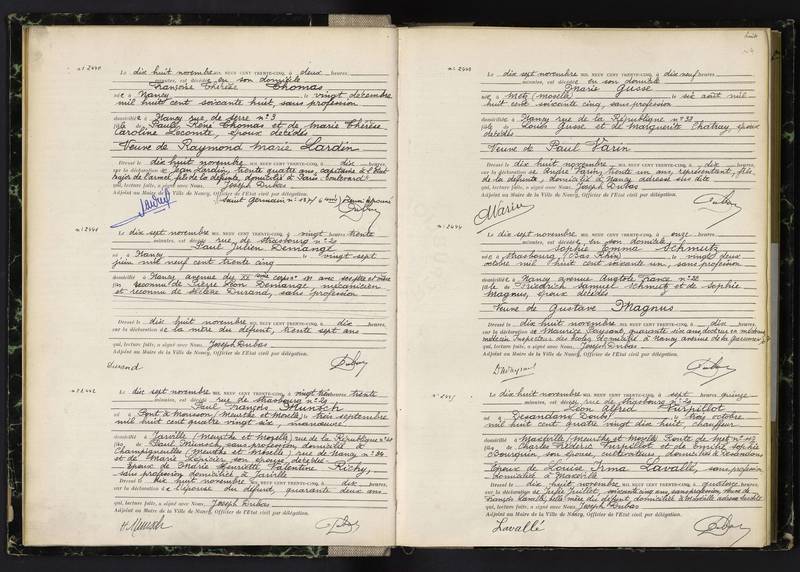 n° 2440
Le dix huit novembre MIL NEUF CENT TRENTE-CINQ, à deux heures
minutes, est décédée en son domicile
Françoise Thérèse Thomas
née à Nancy le vingt décembre
mil huit cent soixante huit, sans profession
domiciliée à Nancy rue de Serre n° 3
fille de Paul René Thomas et de Marie Thérèse
Caroline Lecomte, époux décédés
Veuve de Raymond Marie Lardin
Dressé le dix huit novembre MIL NEUF CENT TRENTE-CINQ, à dix heures,
sur la déclaration de Jean Lardin, trente quatre ans, capitaine à l'État
major de l'armée, fils de la défunte, domicilié à Paris boulevard
qui, lecture faite, a signé avec Nous, Joseph Dubas
Adjoint au Maire de la Ville de Nancy, Officier de l'Etat civil par délégation.
Saint Germain n°
n° 2441
Le dix sept novembre MIL NEUF CENT TRENTE-CINQ, à vingt heures trente
minutes, est décédé rue de Strasbourg n° 20
Paul Julien Demange
né à Nancy le vingt sept
juin mil neuf cent trente cinq
domicilié à Nancy avenue du XX ème corps n° 11 avec ses père et mère
fils reconnu de Pierre Léon Demange mécanicien
et reconnu de Hélène Durand, sans profession
Dressé le dix huit novembre MIL NEUF CENT TRENTE-CINQ, à dix heures,
sur la déclaration de la mère du défunt, trente sept ans
qui, lecture faite, a signé avec Nous, Joseph Dubas
Adjoint au Maire de la Ville de Nancy, Officier de l'Etat civil par délégation.
Durand
n° 2442
Le dix sept novembre MIL NEUF CENT TRENTE-CINQ, à vingt trois heures trente
minutes, est décédé rue de Strasbourg n° 20
Paul François Munsch
né à Pont à Mousson (Meurthe et Moselle) le trois septembre
mil huit cent quatre vingt six, manœuvre
domicilié à Jarville (Meurthe et Moselle) rue de la République n°
fils de Paul Munsch, sans profession domicilié à
Champigneulles (Meurthe et Moselle) rue de Nancy n° 84
et de Marie son épouse décédée
Époux de Marie Henriette Valentine Richy,
sans profession domiciliée à Jarville
Dressé le dix huit novembre MIL NEUF CENT TRENTE-CINQ, à dix heures,
sur la déclaration de l'épouse du défunt, quarante deux ans
qui, lecture faite, a signé avec Nous, Joseph Dubas
Adjoint au Maire de la Ville de Nancy, Officier de l'Etat civil par délégation.
Munsch
huit
n° 2443
Le dix sept novembre MIL NEUF CENT TRENTE-CINQ, à dix neuf heures
minutes, est décédée en son domicile
Marie Gusse
née à Metz (Moselle) le six août mil
huit cent soixante cinq, sans profession
domiciliée à Nancy rue de la République n° 32
fille de Louis Gusse et de Marguerite Chatray, époux
décédés
Veuve de Paul Varin
Dressé le dix huit novembre MIL NEUF CENT TRENTE-CINQ, à dix heures,
sur la déclaration de André Varin, trente un ans, représentant, fils
de la défunte, domicilié à Nancy adresse sus dite
qui, lecture faite, a signé avec Nous, Joseph Dubas
Adjoint au Maire de la Ville de Nancy, Officier de l'Etat civil par délégation.
Varin
n° 2444
Le dix sept novembre MIL NEUF CENT TRENTE-CINQ, à onze heures
minutes, est décédée en son domicile
Sophie Emma Schmutz
née à Strasbourg (Bas Rhin) le vingt deux
octobre mil huit cent soixante un, sans profession
domiciliée à Nancy avenue Anatole France n°
fille de Friedrich Samuel Schmutz et de Sophie
Magnus, époux décédés
Veuve de Gustave Magnus
Dressé le dix huit novembre MIL NEUF CENT TRENTE-CINQ, à dix heures,
sur la déclaration de Maurice quarante six ans, docteur en médecine
médecin Inspecteur des écoles, domicilié à Nancy avenue de la Garenne
qui, lecture faite, a signé avec Nous, Joseph Dubas
Adjoint au Maire de la Ville de Nancy, Officier de l'Etat civil par délégation.
n° 2445
Le dix huit novembre MIL NEUF CENT TRENTE-CINQ, à sept heures quinze
minutes, est décédé rue de Strasbourg n° 20
Léon Alfred Vurpillot
né à Désandans (Doubs) le trois octobre
mil huit cent quatre vingt dix huit, chauffeur
domicilié à Maxéville (Meurthe et Moselle) Route de Metz n°
fils de Charles Frédéric Vurpillot et de Sophie
Bourquin, son épouse, cultivateurs, domiciliés à Désandans
Époux de Louise Irma Lavallé, sans profession
domiciliée à Maxéville
Dressé le dix huit novembre MIL NEUF CENT TRENTE-CINQ, à quatorze heures,
sur la déclaration de soixante cinq ans, sans profession, veuve de
François Lavallé, belle mère du défunt, domiciliée à Maxéville adresse sus dite
qui, lecture faite, a signé avec Nous, Joseph Dubas
Adjoint au Maire de la Ville de Nancy, Officier de l'Etat civil par délégation.
Lavallé